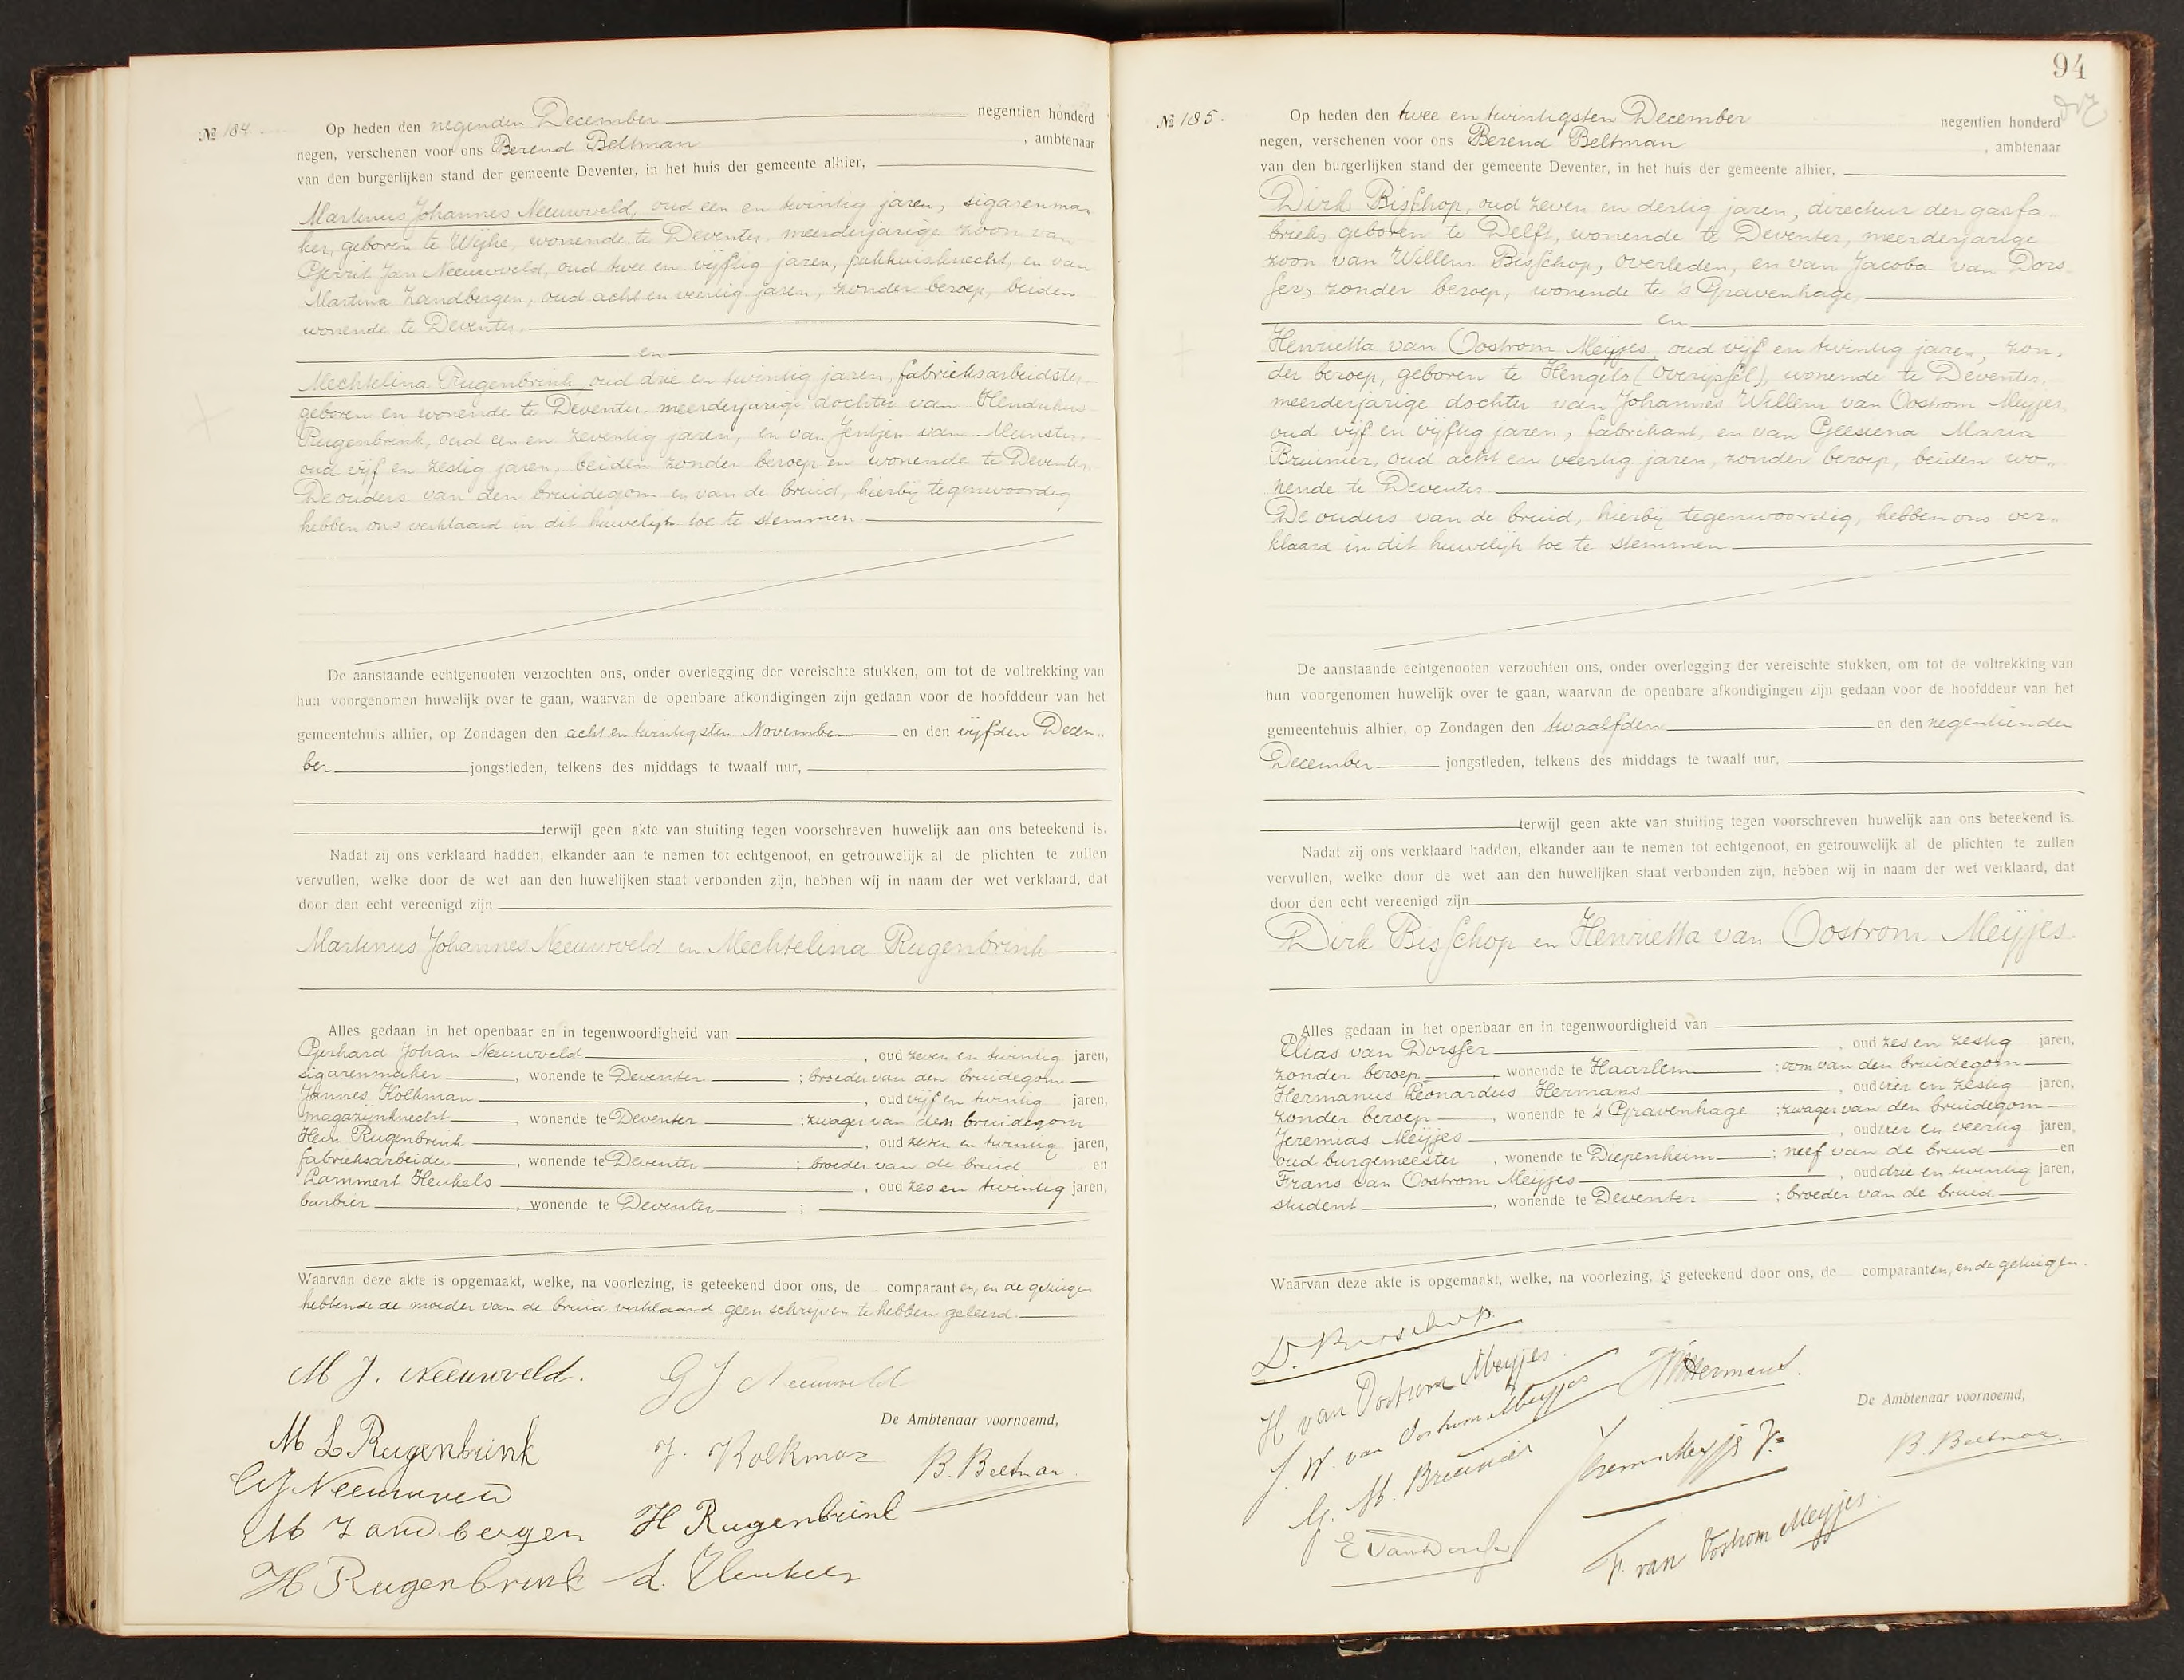 № 184.
Op heden den negenden December negentien honderd
negen, verschenen voor ons Berend Beltman, ambtenaar
van den burgerlijken stand der gemeente Deventer, in het huis der gemeente alhier,
Martinus Johannes Neeuwveld, oud een en twintig jaren, sigarenma-
ker, geboren te Wijhe, wonende te Deventer, meerderjarige zoon van
Gerrit Jan Neeuwveld, oud twee en vijftig jaren, pakhuisknecht, en van
Martina Zandbergen, oud acht en veertig jaren, zonder beroep, beiden
wonende te Deventer.
en
Mechtelina Rugenbrink, oud drie en twintig jaren, fabrieksarbeidster,
geboren en wonende te Deventer, meerderjarige dochter van Hendrikus
Rugenbrink, oud een en zeventig jaren, en van Jentjen van Munster,
oud vijf en zestig jaren, beiden zonder beroep en wonende te Deventer.
De ouders van den bruidegom en van de bruid, hierbij tegenwoordig
hebben ons verklaard in dit huwelijk toe te stemmen
De aanstaande echtgenooten verzochten ons, onder overlegging der vereischte stukken, om tot de voltrekking van
hun voorgenomen huwelijk over te gaan, waarvan de openbare afkondigingen zijn gedaan voor de hoofddeur van het
gemeentehuis alhier, op Zondagen den acht en twintigsten November en den vijfden Decem„
ber jongstleden, telkens des middags te twaalf uur,
terwijl geen akte van stuiting tegen voorschreven huwelijk aan ons beteekend is.
Nadat zij ons verklaard hadden, elkander aan te nemen tot echtgenoot, en getrouwelijk al de plichten te zullen
vervullen, welke door de wet aan den huwelijken staat verbonden zijn, hebben wij in naam der wet verklaard, dat
door den echt vereenigd zijn
Martinus Johannes Neeuwveld en Mechtelina Rugenbrink
Alles gedaan in het openbaar en in tegenwoordigheid van
Gerhard Johan Neeuwveld, oud zeven en twintig jaren,
sigarenmaker, wonende te Deventer; broeder van den bruidegom
Jannes Kolkman, oud vijf en twintig jaren,
magazijnknecht, wonende te Deventer; zwager van den bruidegom
Hein Rugenbrink, oud zeven en twintig jaren,
fabrieksarbeider, wonende te Deventer; broeder van de bruid en
Lammert Heukels, oud zes en twintig jaren,
barbier, wonende te Deventer;
Waarvan deze akte is opgemaakt, welke, na voorlezing, is geteekend door ons, de comparanten, en de getuigen
hebbende de moeder van de bruid verklaard geen schrijven te hebben geleerd.
M J. Neeuwveld.
G J Neeuwveld
De Ambtenaar voornoemd,
M L Rugenbrink
J. Kolkman
B. Beltman.
G J Neeuwveld
M Zandbergen
H Rugenbrink
H Rugenbrink
L. Heukels
94
№ 185.
Op heden den twee en twintigsten December negentien honderd
negen, verschenen voor ons Berend Beltman, ambtenaar
van den burgerlijken stand der gemeente Deventer, in het huis der gemeente alhier,
Dirk Bisschop, oud zeven en dertig jaren, directeur der gasfa„
briek, geboren te Delft, wonende te Deventer, meerderjarige
zoon van Willem Bisschop, overleden, en van Jacoba van Dors
ser, zonder beroep, wonende te 's Gravenhage,
en
Henrietta van Oostrom Meijjes, oud vijf en twintig jaren, zon„
der beroep, geboren te Hengelo (Overijssel), wonende te Deventer,
meerderjarige dochter van Johannes Willem van Oostrom Meijjes,
oud vijf en vijftig jaren, fabrikant, en van Geesiena Maria
Bruinier, oud acht en veertig jaren, zonder beroep, beiden wo„
nende te Deventer.
De ouders van de bruid, hierbij tegenwoordig, hebben ons ver„
klaard in dit huwelijk toe te stemmen
De aanstaande echtgenooten verzochten ons, onder overlegging der vereischte stukken, om tot de voltrekking van
hun voorgenomen huwelijk over te gaan, waarvan de openbare afkondigingen zijn gedaan voor de hoofddeur van het
gemeentehuis alhier, op Zondagen den twaalfden en den negentienden
December jongstleden, telkens des middags te twaalf uur,
terwijl geen akte van stuiting tegen voorschreven huwelijk aan ons beteekend is.
Nadat zij ons verklaard hadden, elkander aan te nemen tot echtgenoot, en getrouwelijk al de plichten te zullen
vervullen, welke door de wet aan den huwelijken staat verbonden zijn, hebben wij in naam der wet verklaard, dat
door den echt vereenigd zijn
Dirk Bisschop en Henrietta van Oostrom Meijjes.
Alles gedaan in het openbaar en in tegenwoordigheid van
Elias van Dorsser, oud zes en zestig jaren,
zonder beroep, wonende te Haarlem; oom van den bruidegom
Hermanus Leonardus Hermans, oud vier en zestig jaren,
zonder beroep, wonende te 's Gravenhage; zwager van den bruidegom
Jeremias Meijjes, oud vier en veertig jaren,
oud burgemeester, wonende te Diepenheim; neef van de bruid en
Frans van Oostrom Meijjes, oud drie en twintig jaren,
student, wonende te Deventer; broeder van de bruid
Waarvan deze akte is opgemaakt, welke, na voorlezing, is geteekend door ons, de comparanten, en de getuigen.
D. Bisschop.
H van Oostrom Meijjes.
Hermans.
J. W. van Oostrom Meijjes
De Ambtenaar voornoemd,
G. M. Bruinier
Jerem. Meijjes Jr.
B. Beltman.
E van Dorsser
F. van Oostrom Meijjes.